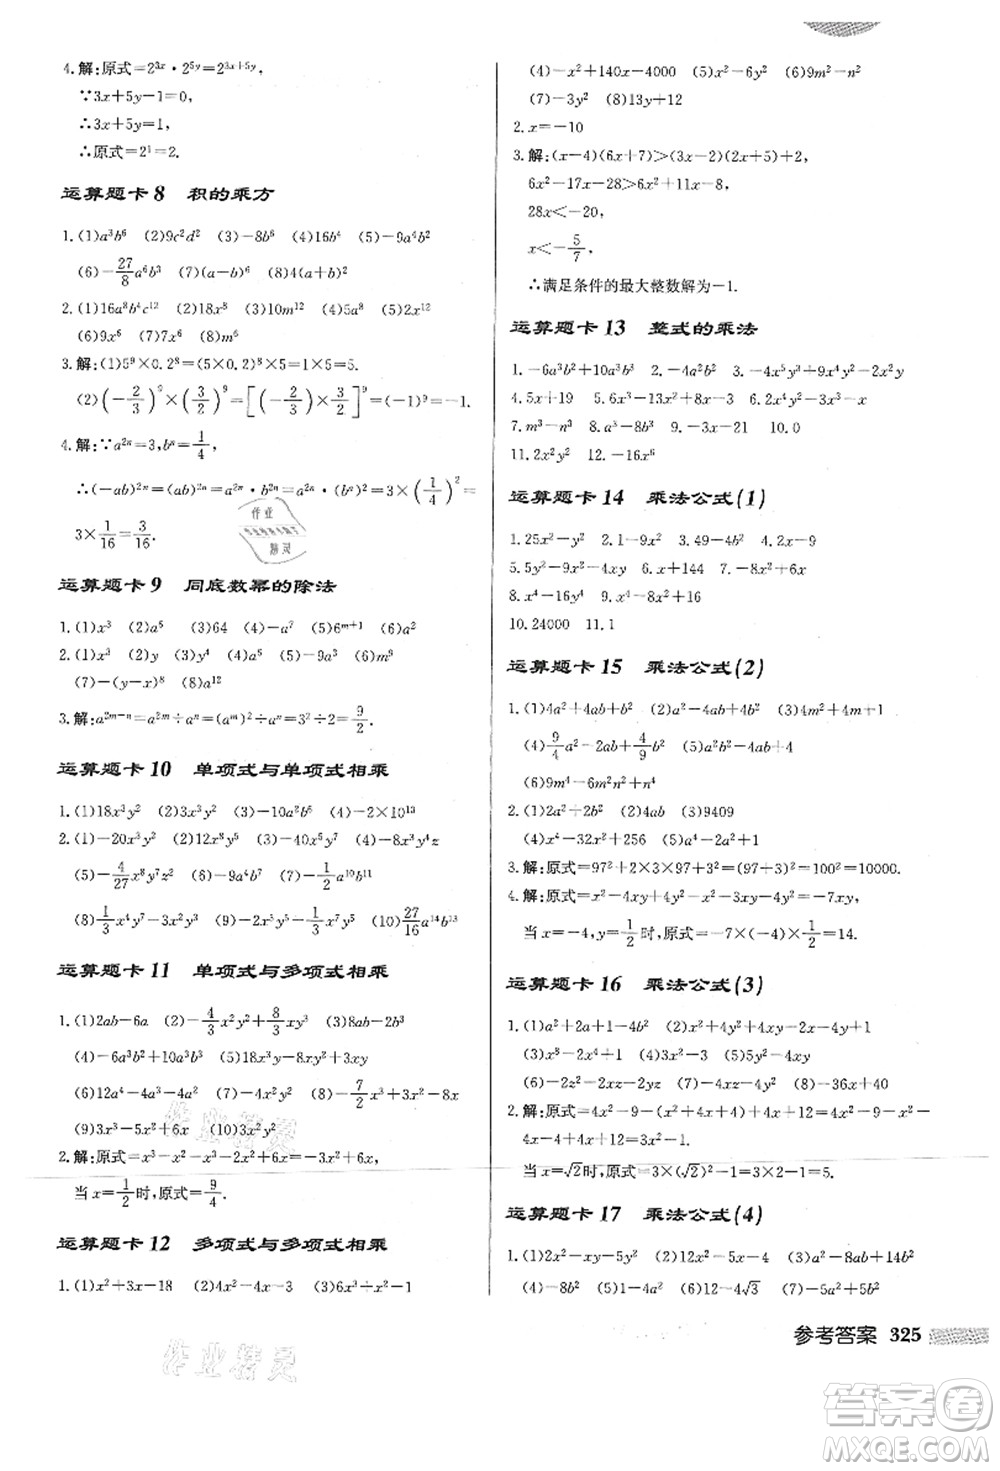 4.解:原式=2^{3x}·2^{5y}=2^{3x+5y},
∵3x+5y-1=0,
∴3x+5y=1,
∴原式=2^1=2.
运算题卡 8 积的乘方
1.(1)a^3b^6 (2)9c^2d^2 (3)-8b^6 (4)16b^4 (5)-9a^4b^2
(6)-\frac{27}{8}a^6b^3 (7)(a-b)^6 (8)4(a+b)^2
2.(1)16a^8b^4c^{12} (2)18x^8 (3)10m^{12} (4)5a^8 (5)x^{12}
(6)9x^6 (7)x^6 (8)m^6
3.解:(1)5^9×0.2^8=(5×0.2)^8×5=1×5=5.
(2)(-\frac{2}{3})^9×(\frac{3}{2})^9=[(-\frac{2}{3})×\frac{3}{2}]^9=(-1)^9=-1.
4.解:∵a^{2n}=3,b^n=\frac{1}{4},
∴(-ab)^{2n}=(ab)^{2n}=a^{2n}·b^{2n}=a^{2n}·(b^n)^2=3×(\frac{1}{4})^2=
3×\frac{1}{16}=\frac{3}{16}.
作业
精灵
运算题卡 9 同底数幂的除法
1.(1)x^3 (2)a^5 (3)64 (4)-a^7 (5)6^{m+1} (6)a^2
2.(1)x^3 (2)y (3)y^4 (4)a^2 (5)x^3 (6)m^9
(7)-(y-x)^2 (8)a^{12}
3.解:a^{2m-n}=a^{2m}÷a^n=(a^m)^2÷a^n=3^2÷2=\frac{9}{2}.
运算题卡 10 单项式与单项式相乘
1.(1)18x^3y^2 (2)3x^3y^2 (3)-10a^2b^6 (4)-2×10^{13}
2.(1)-20x^4y^2 (2)12x^8y^5 (3)-40x^5y^7 (4)-x^3y^4z
(5)-\frac{4}{27}x^8y^7z^2 (6)-9a^4b^6 (7)\frac{1}{3}a^{10}b^{11}
(8)\frac{1}{3}x^4y^4-x^2y^3 (9)-2x^3y^5-\frac{1}{3}x^3y^5 (10)\frac{27}{16}a^{14}b^{13}
运算题卡 11 单项式与多项式相乘
1.(1)2ab-6a (2)-\frac{4}{3}x^2y^2+\frac{8}{3}xy^3 (3)8ab-2b^3
(4)-6a^3b^2+10a^3b^3 (5)-8x^3-12x^2+4x
(6)12a^4-4a^3+8a^2 (7)-4x^2y^3 (8)\frac{7}{2}x^3+x^2-8x
(9)3x^3-5x^2+6x (10)3x^2y^2
2.解:原式=x^3-x^2-x^3-x^2+x=-2x^2+x.
当x=\frac{1}{2}时,原式=\frac{9}{4}.
运算题卡 12 多项式与多项式相乘
1.(1)x^2+3x-18 (2)4x^2-4x-3 (3)x^3+x^2-x-1
(4)-x^2+140x-4000 (5)x^2-6y^2 (6)9m^2-n^2
(7)-3y^2 (8)13y+12
2.x=-10
3.解:(x-4)(6x+7)>(3x-2)(2x+5)+2,
6x^2-17x-28>6x^2+11x-8,
28x<-20,
x<-\frac{5}{7},
∴满足条件的最大整数解为-1.
运算题卡 13 整式的乘法
1.-6a^3b^2+10a^3b^3 2.-4a^2b^2 3.-4x^5y^3+9x^4y^4-2x^2y
4.5x+19 5.6x^2+4x-4 6.2x^2-3x^3-x
7.m^3-n^3 8.a^3-8b^3 9.-3x-21 10.0
11.22x^2 12.-16x^6
运算题卡 14 乘法公式(1)
1.25x^2-y^2 2.1-9a^2 3.49-4b^2 4.2x-9
5.5y^2-9x^2-4xy 6.x+144 7.-8x^2+6x
8.x^4-16y^4 9.x^4-5x^2+4
10.24000 11.1
运算题卡 15 乘法公式(2)
1.(1)4a^2+4ab+b^2 (2)a^2-4ab+4b^2 (3)4m^2+4m+1
(4)\frac{9}{4}a^2-2ab+\frac{4}{9}b^2 (5)a^2b^2-4ab+4
(6)9m^4-6m^2n^2+n^2
2.(1)2a^2+2b^2 (2)4ab (3)9409
(4)x^4-32x^2+256 (5)a^4-2a^2+1
3.解:原式=97^2+2×3×97+3^2=(97+3)^2=100^2=10000.
4.解:原式=x^2-4xy+4y^2-x^2-4y^2-3xy=-7xy,
当x=-4,y=\frac{1}{2}时,原式=-7×(-4)×\frac{1}{2}=14.
运算题卡 16 乘法公式(3)
1.(1)a^2+2a+1-4b^2 (2)-7x^2+4y^2+4xy
(3)x^8-2x^4+1 (4)-3x^2+5y^2-4xy
(5)-2z^2-2yz (6)-4xz-4yz (7)-36x+325
2.解:原式=4x^2-9-4x^2+4x+x^2-
4x-4+12=3x^2-1.
当x=√2时,原式=3×(√2)^2-1=3×2-1=5.
运算题卡 17 乘法公式(4)
1.(1)2x^2-xy-5y^2 (2)12x^2-5x-4 (3)-8ab+5b^2
(4)-12y^2 (5)1-4a^2 (6)12-4√3 (7)-5a^2+5b^2
参考答案 325
作业精灵
作业精灵
答案卷
MXQE.COM